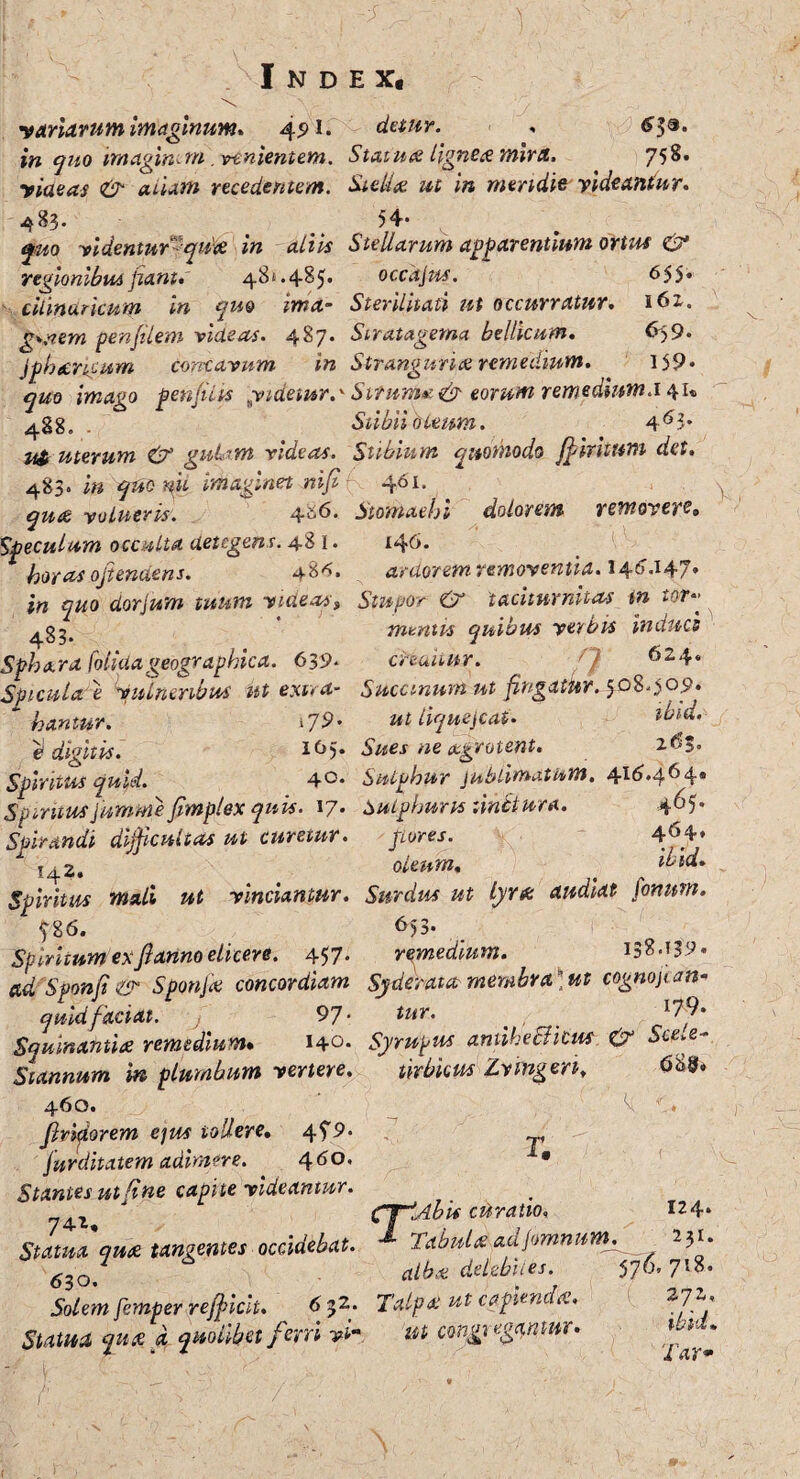 INDEX.
variarum imaginum. 491.
in quo imaginem venientem.
videas & aliam recedentem.
483.
quo videntur quæ in aliis
regionibus fiant. 481.485.
cilindricum in quo ima-
ginem pensilem videas. 487.
sphæricum concavum in
quo imago pensilis videtur.
488.
ut uterum & gulam videas.
483. in quo nil imaginet nisi
quæ volueris. 486.
Speculum occulta detegens. 481.
horas ostendens. 486.
in quo dorsum tuum videas,
483.
Sphæra solida geographica. 639.
Spicula è vulneribus ut extra-
hantur. 179.
è digitis. 165.
Spiritus quid. 40.
Spiritus summè simplex quis. 17.
Spirandi difficultas ut curetur.
142.
Spiritus mali ut vinciantur.
586.
Spiritum ex stanno elicere. 457.
ad Sponsi & Sponsæ concordiam
quid faciat. 97.
Squinantiæ remedium. 140.
Stannum in plumbum vertere.
460.
stridorem ejus tollere. 459.
surditatem adimere. 460.
Stantes ut sine capite videantur.
742.
Statua quæ tangentes occidebat.
630.
Solem semper respicit. 632.
Statua quæ à quolibet ferri vi-
detur. 630.
Statuæ ligneæ mira. 758.
Stellæ ut in meridie videantur.
54.
Stellarum apparentium ortus &
occasus. 655.
Sterilitati ut occurratur. 162.
Stratagema bellicum. 659.
Stranguriæ remedium. 159.
Strumæ & eorum remedium. 141.
Stibii oleum. 463.
Stibium quomodo spiritum det.
461.
Stomachi dolorem removere.
146.
ardorem removentia. 146.147.
Stupor & taciturnitas in tor-
mentis quibus verbis induci
creditur. 624.
Succinum ut fingatur. 508.509.
ut liquescat. ibid.
Sues ne ægrotent. 265.
Sulphur sublimatum. 416.464.
Sulphuris tinctura. 465.
flores. 464.
oleum. ibid.
Surdus ut lyræ audiat sonum.
653.
remedium. 138.139.
Syderata membra ut cognoscan-
tur. 179.
Syrupus antihecticus & Scele-
tirbicus Zvingeri. 688.
T.
TAbis curatio. 124.
Tabulæ ad somnum. 231.
albæ delebiles. 576. 718.
Talpæ ut capiendæ. 272.
ut congregantur. ibid.
Tar-